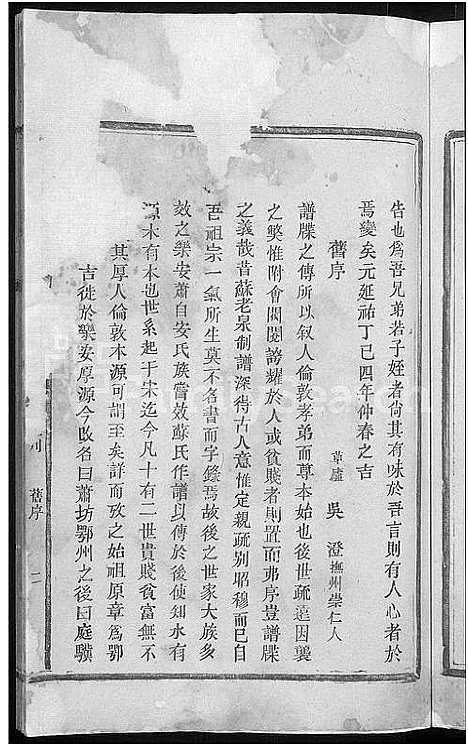 告也爲吾兄弟若子姪者尙其有味於吾言則有人心者於
焉變矣元延祐丁巳四年仲春之吉
舊序
草廬 吳 澄撫州崇仁人
譜牒之傳所以叙人倫敦孝弟而尊本始也後世疏遠因襲
之獘惟附會閥閱誇耀於人或貧賤者則置而弗序豈譜牒
之義哉昔蘇老泉制譜深得古人意惟定親疏别昭穆而已自
吾祖宗一氣所生莫不名書而字錄焉故後之世家大族多
效之樂安蕭自安氏族嘗效蘇氏作譜以傳於後使知水有
源木有本也世系起于宋迄今凡十有二世貴賤貧富無不
其厚人倫敦本源可謂至矣詳而攷之始祖原章爲鄂
吉徙於樂安厚源今改名曰蕭坊鄂州之後曰庭驥
舊序
二